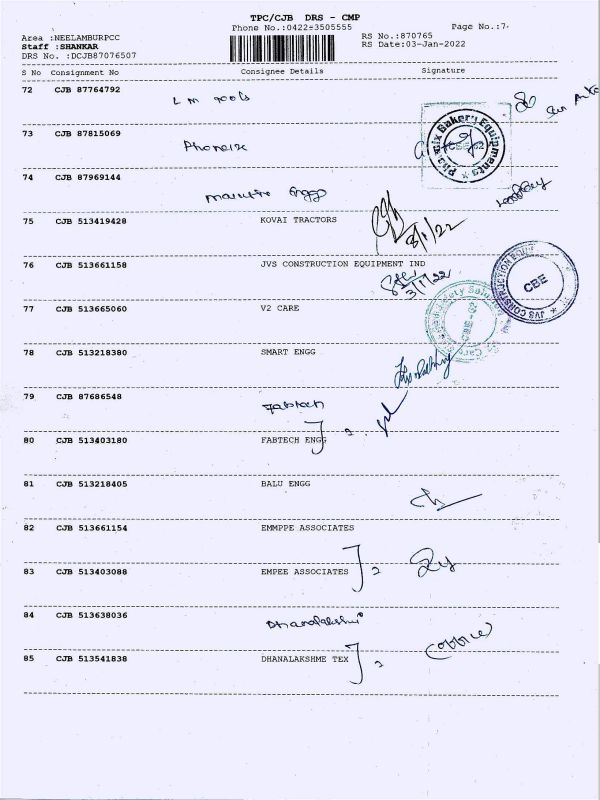 TPC/CJB DRS - CMP
Phone No.:0422-3505555
Page No.:7
Area :NEELAMBURPCC
RS No.:870765
Staff :SHANKAR
RS Date:03-Jan-2022
DRS No. :DCJB87076507
S No Consignment No Consignee Details Signature
72 CJB 87764792
L M Tools
73 CJB 87815069
Phoneix
Phoenix Bakery Equipments
CBE-62
74 CJB 87969144
Engg
75 CJB 513419428 KOVAI TRACTORS
3/1/22
76 CJB 513661158 JVS CONSTRUCTION EQUIPMENT IND
3/1/22
JVS CONSTRUCTION EQUIP
CBE
77 CJB 513665060 V2 CARE
Safety
CBE-02
V2 Care
78 CJB 513218380 SMART ENGG
79 CJB 87686548
Fabtech
80 CJB 513403180 FABTECH ENGG
2
81 CJB 513218405 BALU ENGG
82 CJB 513661154 EMMPPE ASSOCIATES
83 CJB 513403088 EMPEE ASSOCIATES
2
84 CJB 513638036
Dhanalakshmi
85 CJB 513541838 DHANALAKSHME TEX
2